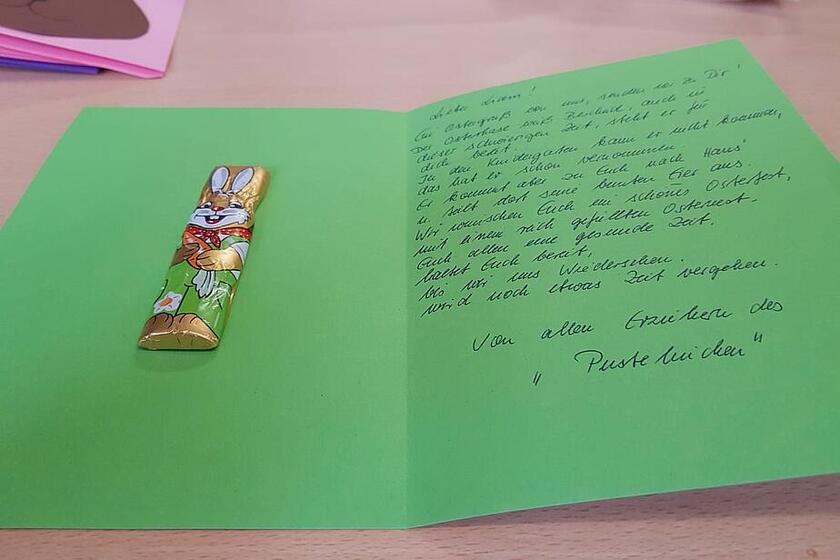 Liebe
Ein Ostergruß von uns, senden wir zu Dir!
Der Osterhase weiß Bescheid, auch in
dieser schwierigen Zeit, steht er für
dich bereit.
In den Kindergarten kann er nicht kommen,
das hat er schon vernommen.
Er kommt aber zu Euch nach Haus'
u. teilt dort seine bunten Eier aus.
Wir wünschen Euch ein schönes Osterfest,
mit einem reich gefüllten Osternest.
Euch allen eine gesunde Zeit.
haltet Euch bereit,
bis wir uns Wiedersehen.
wird noch etwas Zeit vergehen.
Von allen Erziehern des
"Pusteblümchen"